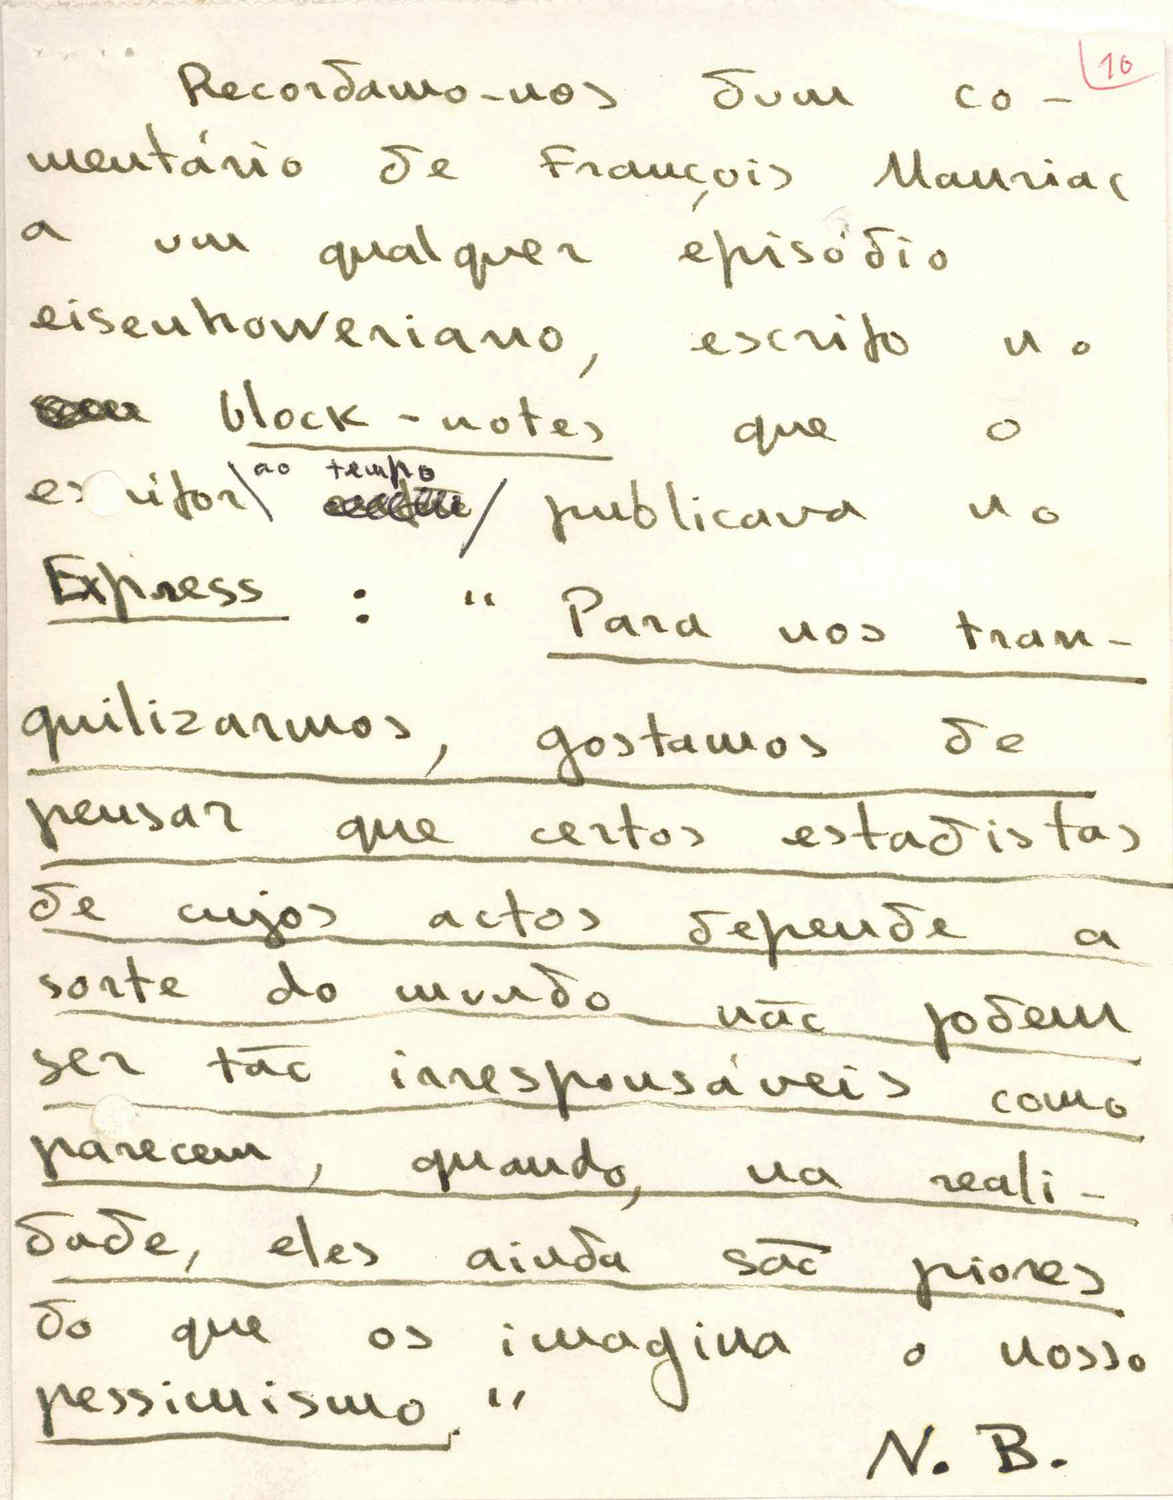 10
Recordamo-nos dum co-
mentário de François Mauriac
a um qualquer episódio
eisenhoweriano, escrito no
block-notes que o
escritor ao tempo publicava no
Express : " Para nos tran-
quilizarmos, gostamos de
pensar que certos estadistas
de cujos actos depende a
sorte do mundo não podem
ser tão irresponsáveis como
parecem, quando, na reali-
dade, eles ainda são piores
do que os imagina o nosso
pessimismo."
N. B.